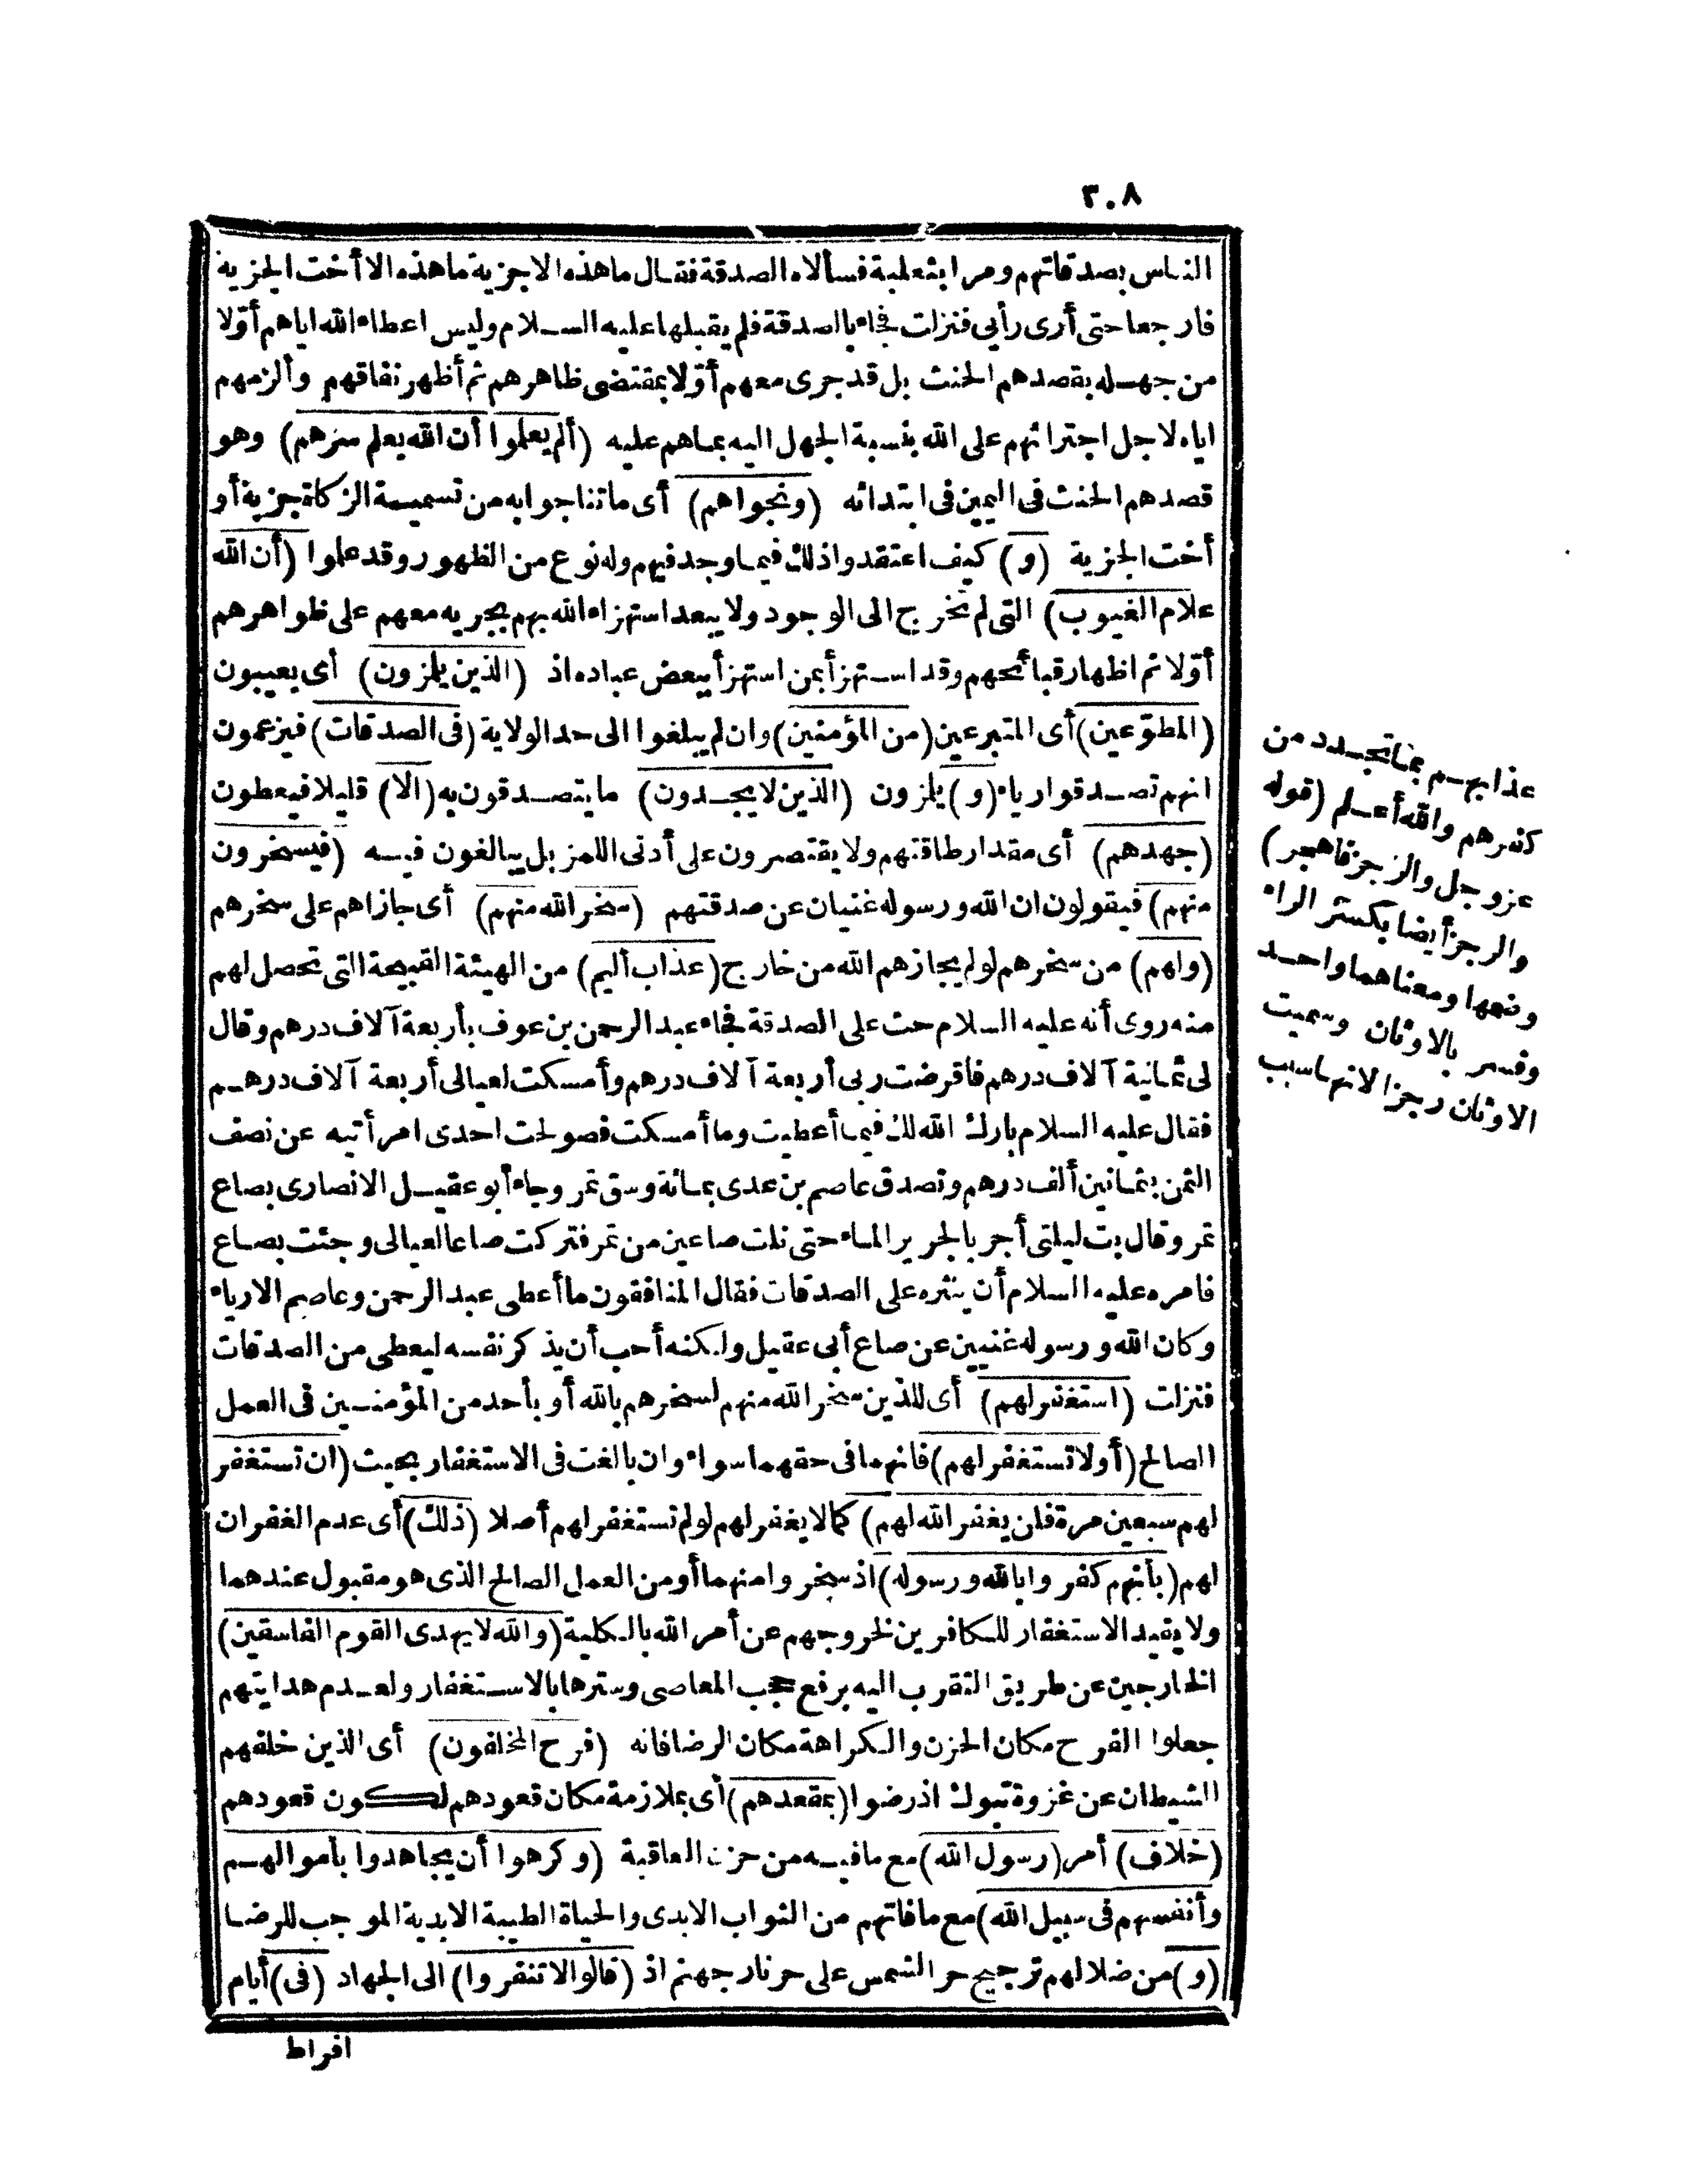 ٣٠٨
الناس بصدقاتهم ومرا بثعلبة فسألاه الصدقة فقال ما هذه الا جزية ما هذه الا أخت الجزية
فارجعا حتى أرى رأيي فنزلت فجاء بالصدقة فلم يقبلها عليه السلام وليس اعطاء الله اياهم أوّلا
من جهله بقصدهم الحنث بل قد جرى معهم أوّلا بمقتضى ظاهرهم ثم أظهر نفاقهم وألزمهم
اياه لاجل اجترائهم على الله بنسبة الجهل اليه بما هم عليه (ألم يعلموا أن الله يعلم سرّهم) وهو
قصدهم الحنث فى اليمين فى ابتدائه (ونجواهم) أى ما تناجوا به من تسمية الزكاة جزية أو
أخت الجزية (و) كيف اعتقدوا ذلك فيما وجد فيهم وله نوع من الظهور وقد علموا (أن الله
علام الغيوب) التى لم تخرج الى الوجود ولا يبعد استهزاء الله بهم بجريه معهم على ظواهرهم
أوّلا ثم اظهار قبائحهم وقد استهزأ بمن استهزأ ببعض عباده اذ (الذين يلمزون) أى يعيبون
(المطوّعين) أى المتبرعين (من المؤمنين) وان لم يبلغوا الى حد الولاية (فى الصدقات) فيزعمون
انهم تصدقوا رياء (و) يلمزون (الذين لا يجدون) ما يتصدقون به (الا) قليلا فيعطون
(جهدهم) أى مقدار طاقتهم ولا يقتصرون على أدنى اللمز بل يبالغون فيه (فيسخرون
منهم) فيقولون ان الله ورسوله غنيان عن صدقتهم (سخر الله منهم) أى جازاهم على سخرهم
(ولهم) من سخرهم لو لم يجازهم الله من خارج (عذاب أليم) من الهيئة القبيحة التى تحصل لهم
منه روى أنه عليه السلام حث على الصدقة فجاء عبد الرحمن بن عوف بأربعة آلاف درهم وقال
لى ثمانية آلاف درهم فاقرضت ربى أربعة آلاف درهم وأمسكت لعيالى أربعة آلاف درهم
فقال عليه السلام بارك الله لك فيما أعطيت وما أمسكت فصولحت احدى امرأتيه عن نصف
الثمن بثمانين ألف درهم وتصدق عاصم بن عدى بمائة وسق تمر وجاء أبو عقيل الانصارى بصاع
تمر وقال بت ليلتى أجر بالجرير الماء حتى نلت صاعين من تمر فتركت صاعا لعيالى وجئت بصاع
فامره عليه السلام أن ينثره على الصدقات فقال المنافقون ما أعطى عبد الرحمن وعاصم الا رياء
وكان الله ورسوله غنيين عن صاع أبى عقيل ولكنه أحب أن يذكر نفسه ليعطى من الصدقات
فنزلت (استغفر لهم) أى للذين سخر الله منهم لسخرهم بالله أو بأحد من المؤمنين فى العمل
الصالح (أو لا تستغفر لهم) فانهما فى حقهم سواء وان بالغت فى الاستغفار بحيث (ان تستغفر
لهم سبعين مرة فلن يغفر الله لهم) كما لا يغفر لهم لو لم تستغفر لهم أصلا (ذلك) أى عدم الغفران
لهم (بأنهم كفروا بالله ورسوله) اذ سخروا منهما أو من العمل الصالح الذى هو مقبول عندهما
ولا يفيد الاستغفار للكافرين لخروجهم عن أمر الله بالكلية (والله لا يهدى القوم الفاسقين)
الخارجين عن طريق التقرب اليه برفع حجب المعاصى وسترها بالاستغفار ولعدم هدايتهم
جعلوا الفرح مكان الحزن والكراهة مكان الرضا فانه (فرح المخلفون) أى الذين خلفهم
الشيطان عن غزوة تبوك اذ رضوا (بمقعدهم) أى بملازمة مكان قعودهم لكون قعودهم
(خلاف) أمر (رسول الله) مع ما فيه من حزن العاقبة (وكرهوا أن يجاهدوا بأموالهم
وأنفسهم فى سبيل الله) مع ما فاتهم من الثواب الابدى والحياة الطيبة الابدية الموجب للرضا
(و) من ضلالهم ترجيح حر الشمس على حر نار جهنم اذ (قالوا لا تنفروا) الى الجهاد (فى) أيام
افراط
عذابهم بما تجدد من
كفرهم والله أعلم (قوله
عز وجل والرجز فاهجر)
والرجز أيضا بكسر الراء
وضمها ومعناهما واحد
وفسر بالاوثان وسميت
الاوثان رجزا لانها سبب